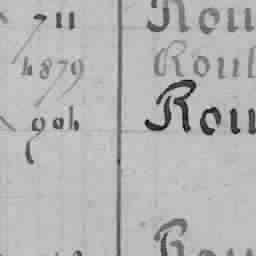 711 Rou
4879 Roul
904 Rou
Rou